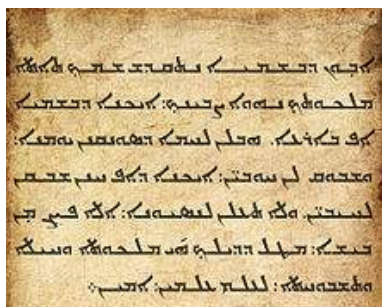 ܐܒܘܢ ܕܒܫܡܝܐ ܢܬܩܕܫ ܫܡܟ ܬܐܬܐ
ܡܠܟܘܬܟ ܢܗܘܐ ܨܒܝܢܟ: ܐܝܟܢܐ ܕܒܫܡܝܐ
ܐܦ ܒܐܪܥܐ. ܗܒ ܠܢ ܠܚܡܐ ܕܣܘܢܩܢܢ ܝܘܡܢܐ:
ܘܫܒܘܩ ܠܢ ܚܘܒܝ̈ܢ: ܐܝܟܢܐ ܕܐܦ ܚܢܢ ܫܒܩܢ
ܠܚܝܒܝ̈ܢ. ܘܠܐ ܬܥܠܢ ܠܢܣܝܘܢܐ: ܐܠܐ ܦܨܢ ܡܢ
ܒܝܫܐ: ܡܛܠ ܕܕܝܠܟ ܗܝ ܡܠܟܘܬܐ ܘܚܝܠܐ
ܘܬܫܒܘܚܬܐ: ܠܥܠܡ ܥܠܡܝܢ: ܐܡܝܢ܀